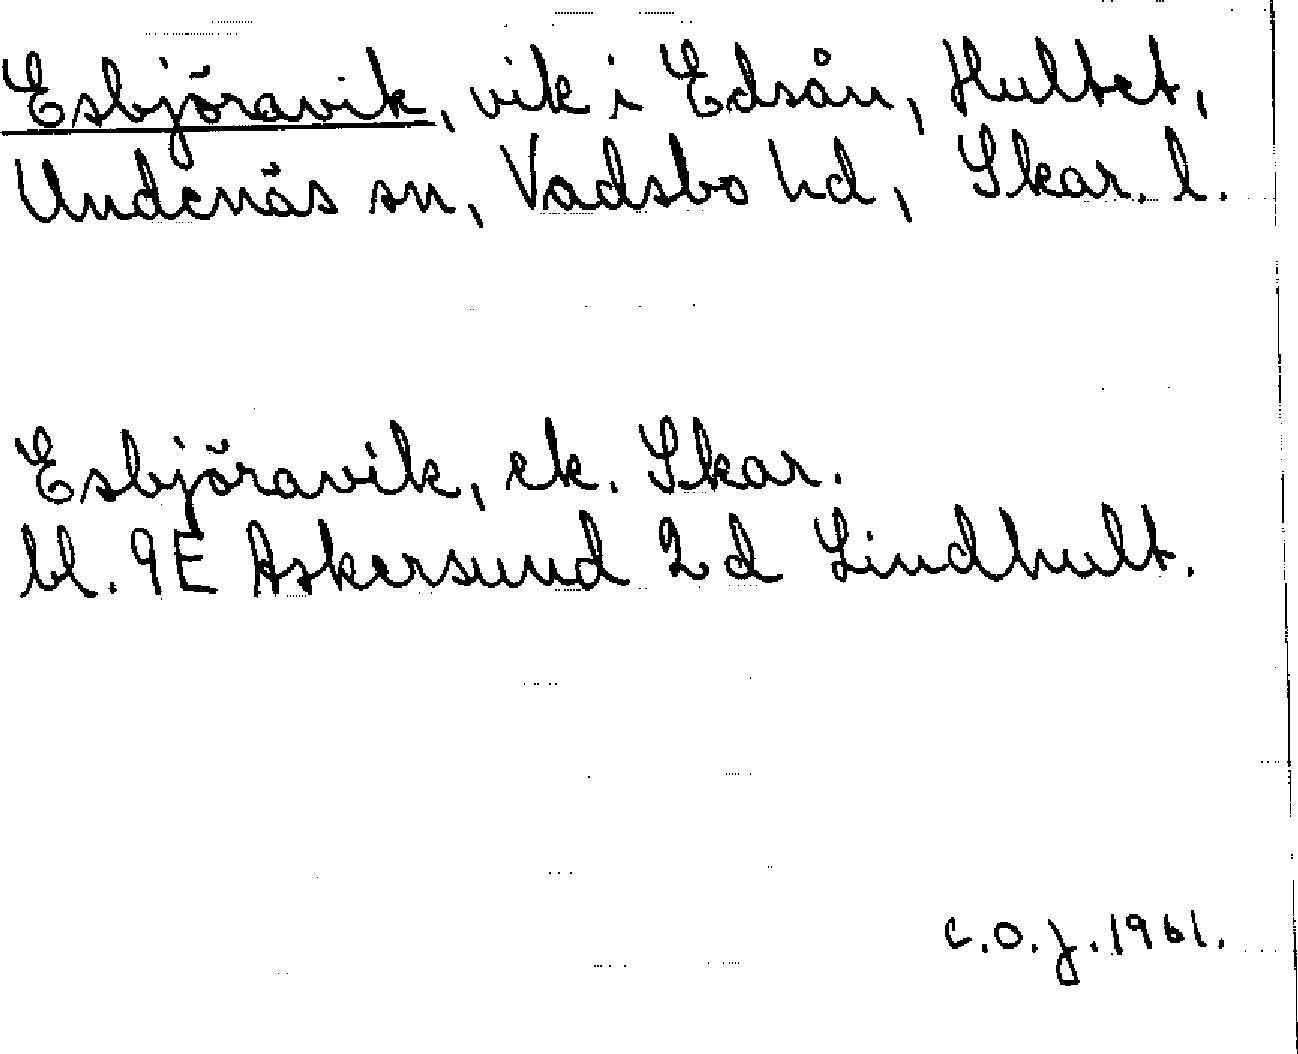 Esbjöravik, vik i Edsån, Hultet,
Undenäs sn, Vadsbo hd, Skar. l.
Esbjöravik, ek. Skar.
bl. 9E Askersund 2d Lindhult.
c.o.j. 1961.